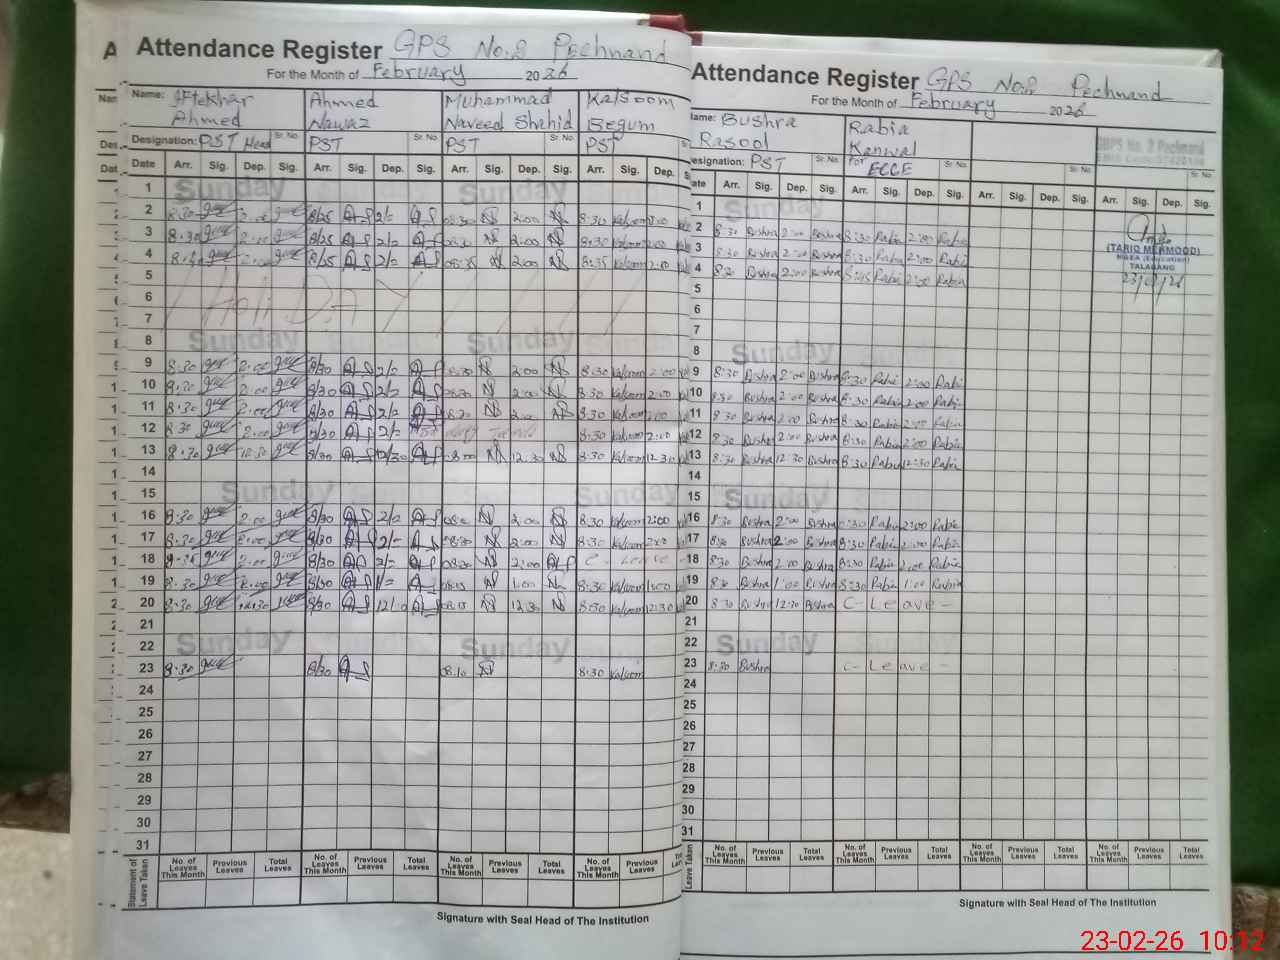 Attendance Register GPS No.2 Pechnand
For the Month of February 2026
Name: Iftekhar Ahmed
Ahmed Nawaz
Muhammad Naveed Shahid
Kalsoom Begum
Designation: PST Head Sr. No
PST Sr. No
PST Sr. No
PST
Date Arr. Sig. Dep. Sig. Arr. Sig. Dep. Sig. Arr. Sig. Dep. Sig. Arr. Sig. Dep.
1 Sunday Sunday
2 8:30 2:00 8/25 2/= 08:30 2:00 8:30 Kalsoom 2:00
3 8:30 2:00 8/25 2/= 2:00 8:30 Kalsoom 2:00
4 2:00 8/25 2/= 08:35 2:00 8:35 Kalsoom 2:00
5
6 Holi DAY
7
8 Sunday Sunday
9 8:30 2:00 8/30 2/= 08:30 2:00 8:30 Kalsoom 2:00
10 8:30 2:00 8/30 2/= 08:30 2:00 8:30 Kalsoom 2:00
11 8:30 2:00 8/30 2/= 08:30 2:00 8:30 Kalsoom 2:00
12 8:30 2:00 8/30 2/= 8:30 Kalsoom 2:00
13 8:30 12:30 8/30 12/30 12:30 8:30 Kalsoom 12:30
14
15 Sunday Sunday
16 8:30 2:00 8/30 2/= 2:00 8:30 Kalsoom 2:00
17 8:30 2:00 8/30 2/= 08:30 2:00 8:30 Kalsoom 2:00
18 2:00 8/30 2/= 2:00 C. Leave
19 8:30 8/30 1/= 08:15 1:00 8:30 Kalsoom 1:00
20 8:30 12:30 8/30 08:15 12:30 8:30 Kalsoom 12:30
21
22 Sunday Sunday
23 8:30 8/30 08:10 8:30 Kalsoom
24
25
26
27
28
29
30
31
Statement of Leave Taken
No. of Leaves This Month Previous Leaves Total Leaves No. of Leaves This Month Previous Leaves Total Leaves No. of Leaves This Month Previous Leaves Total Leaves No. of Leaves This Month Previous Leaves
Signature with Seal Head of The Institution
Attendance Register GPS No.2 Pechnand
For the Month of February 2026
Name: Bushra Rasool
Rabia Kanwal
GBPS No. 2 Pechnand
Designation: PST Sr. No
For ECCE Sr. No
Sr. No
Sr. No
Date Arr. Sig. Dep. Sig. Arr. Sig. Dep. Sig. Arr. Sig. Dep. Sig. Arr. Sig. Dep. Sig.
1 Sunday
2 8:30 Bushra 2:00 Bushra 8:30 Rabia 2:00 Rabia
3 8:30 Bushra 2:00 Bushra 8:30 Rabia 2:00 Rabia
(TARIQ MEHMOOD)
TALAGANG
23/02/26
4 Bushra 2:00 Bushra Rabia 2:00 Rabia
5
6
7
8 Sunday
9 8:30 Bushra 2:00 Bushra 8:30 Rabia 2:00 Rabia
10 8:30 Bushra 2:00 Bushra 8:30 Rabia 2:00 Rabia
11 8:30 Bushra 2:00 Bushra 8:30 Rabia 2:00 Rabia
12 8:30 Bushra 2:00 Bushra 8:30 Rabia 2:00 Rabia
13 8:30 Bushra 12:30 Bushra 8:30 Rabia 12:30 Rabia
14
15 Sunday
16 8:30 Bushra 2:00 Bushra 8:30 Rabia 2:00 Rabia
17 8:30 Bushra 2:00 Bushra 8:30 Rabia 2:00 Rabia
18 8:30 Bushra 2:00 Bushra 8:30 Rabia 2:00 Rabia
19 8:30 Bushra 1:00 Bushra 8:30 Rabia 1:00 Rabia
20 8:30 Bushra 12:30 Bushra C-Leave-
21
22 Sunday
23 8:30 Bushra C-Leave-
24
25
26
27
28
29
30
31
Leave Taken
No. of Leaves This Month Previous Leaves Total Leaves No. of Leaves This Month Previous Leaves Total Leaves No. of Leaves This Month Previous Leaves Total Leaves No. of Leaves This Month Previous Leaves Total Leaves
Signature with Seal Head of The Institution
23-02-26 10:12